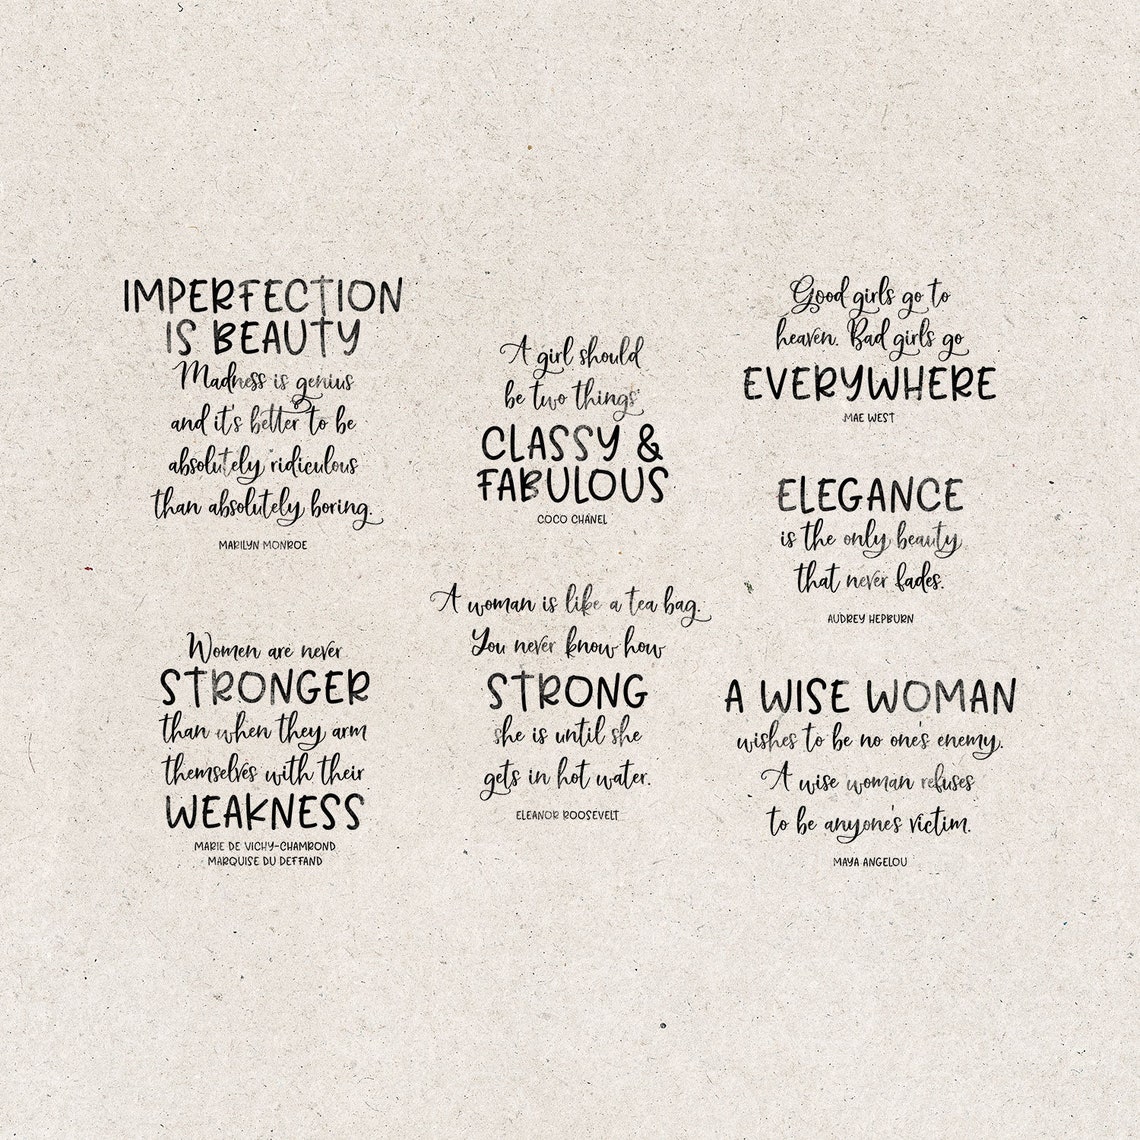 IMPERFECTION
IS BEAUTY
Madness is genius
and it's better to be
absolutely ridiculous
than absolutely boring.
MARILYN MONROE
Women are never
STRONGER
than when they arm
themselves with their
WEAKNESS
MARIE DE VICHY-CHAMROND
MARQUISE DU DEFFAND
A girl should
be two things
CLASSY &
FABULOUS
COCO CHANEL
A woman is like a tea bag.
You never know how
STRONG
she is until she
gets in hot water.
ELEANOR ROOSEVELT
Good girls go to
heaven. Bad girls go
EVERYWHERE
MAE WEST
ELEGANCE
is the only beauty
that never fades.
AUDREY HEPBURN
A WISE WOMAN
wishes to be no one's enemy.
A wise woman refuses
to be anyone's victim.
MAYA ANGELOU